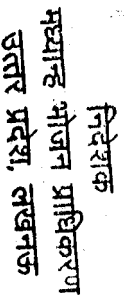 निदेशक
मध्यान्ह भोजन प्राधिकरण
उत्तर प्रदेश, लखनऊ